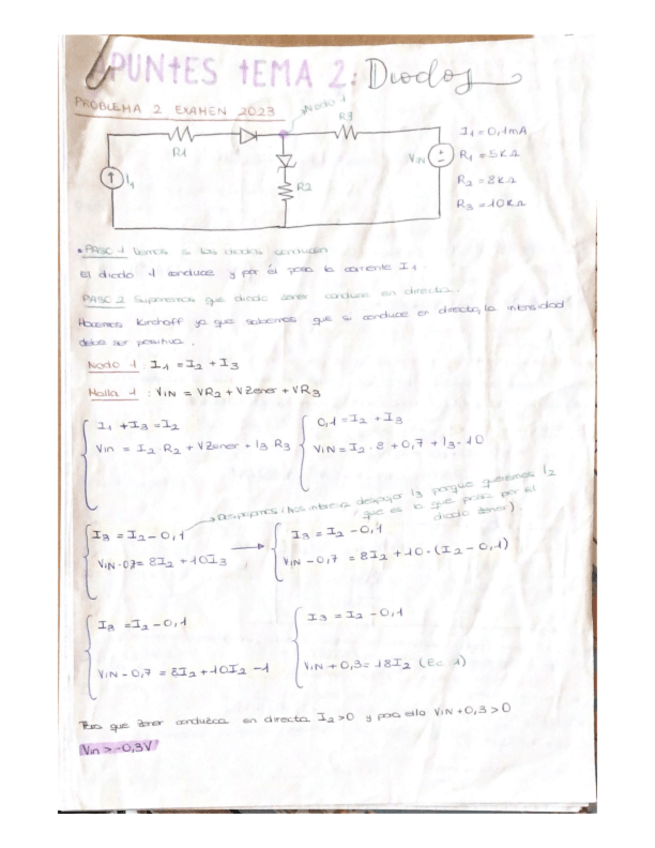 APUNTES TEMA 2: Diodos
PROBLEMA 2 EXAMEN 2023
Nodo 1
R3
R1
I1
R2
VIN
I1 = 0,1mA
R1 = 5KΩ
R2 = 8KΩ
R3 = 10KΩ
• PASO 1 Vemos si los diodos conducen
El diodo 1 conduce y por él pasa la corriente I1.
PASO 2 Suponemos que diodo zener conduce en directa.
Hacemos Kirchoff ya que sabemos que si conduce en directa, la intensidad
debe ser positiva.
Nodo 1: I1 = I2 + I3
Malla 1: VIN = VR2 + VZener + VR3
I1 + I3 = I2
Vin = I2·R2 + VZener + I3 R3
0,1 = I2 + I3
VIN = I2·8 + 0,7 + I3·10
Despejamos (Nos interesa despejar I3 porque queremos I2
que es lo que pasa por el
diodo zener)
I3 = I2 - 0,1
VIN - 0,7 = 8I2 + 10I3
I3 = I2 - 0,1
VIN - 0,7 = 8I2 + 10·(I2 - 0,1)
I3 = I2 - 0,1
VIN - 0,7 = 8I2 + 10I2 - 1
I3 = I2 - 0,1
VIN + 0,3 = 18I2 (Ec. 1)
Para que zener conduzca en directa I2 > 0 y para ello VIN + 0,3 > 0
Vin > -0,3V